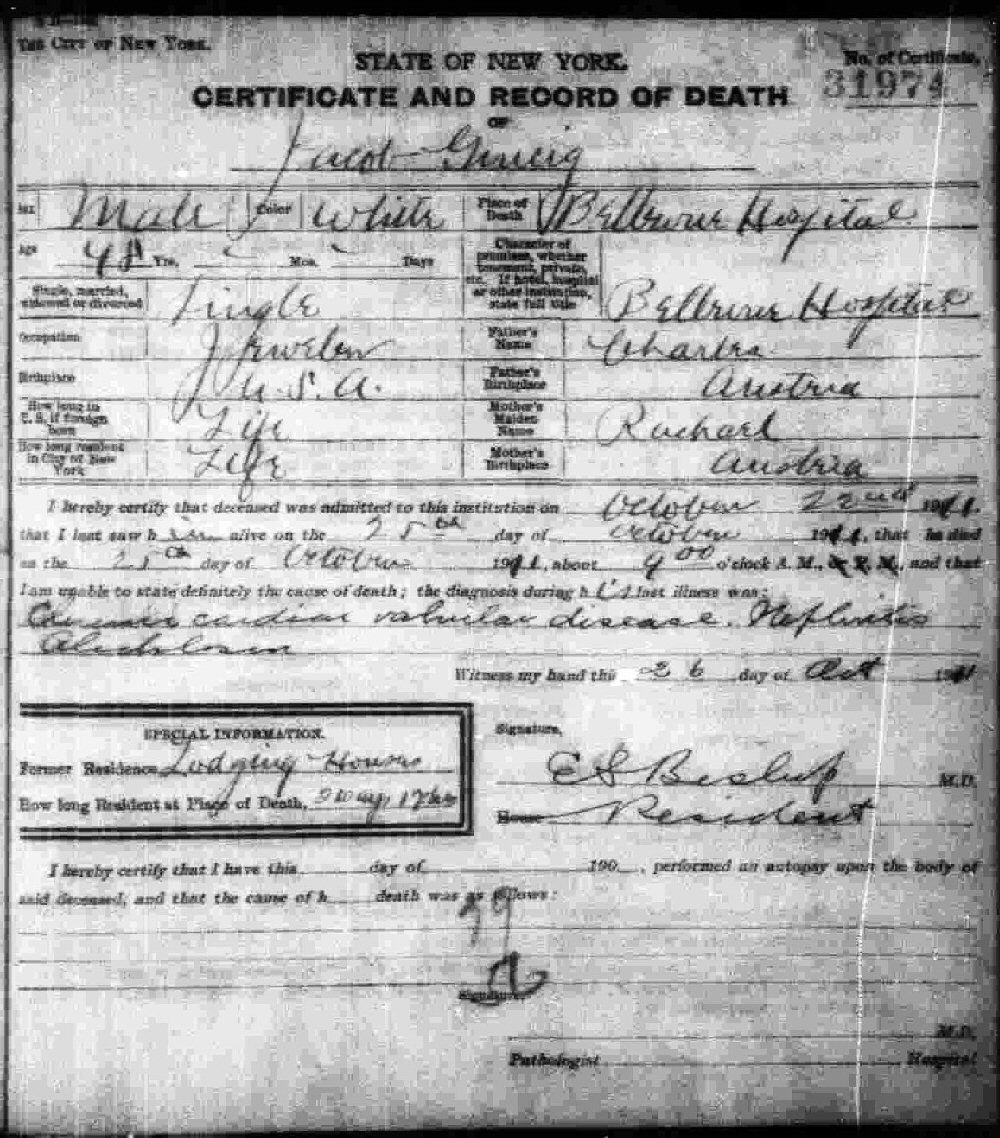 THE CITY OF NEW YORK.
STATE OF NEW YORK.
No. of Certificate,
31974
CERTIFICATE AND RECORD OF DEATH
OF
Jacob
Sex Male Color White Place of Death Bellevue Hospital
Age 48 Yrs. Mos. Days
Character of premises, whether tenement, private, etc. If hotel, hospital or other institution, state full title Bellevue Hospital
Single, married, widowed or divorced Single
Occupation Jeweler Father's Name Charles
Birthplace U.S.A. Father's Birthplace Austria
How long in U. S. if foreign born Life Mother's Maiden Name Rachael
How long resident in City of New York Life Mother's Birthplace Austria
I hereby certify that deceased was admitted to this institution on October 22nd 1911.
that I last saw him alive on the 25th day of October 1911, that he died
on the 25th day of October 1911, about 9 00 o'clock A. M., or P. M., and that
I am unable to state definitely the cause of death; the diagnosis during his last illness was:
Chronic cardiac valvular disease. Nephritis
Alcoholism
Witness my hand this 26 day of Oct 1911
SPECIAL INFORMATION.
Former Residence Lodging House
How long Resident at Place of Death,
Signature,
M.D.
House Resident
I hereby certify that I have this day of 190 , performed an autopsy upon the body of
said deceased, and that the cause of h death was as follows:
79
Signature
M.D.
Pathologist Hospital